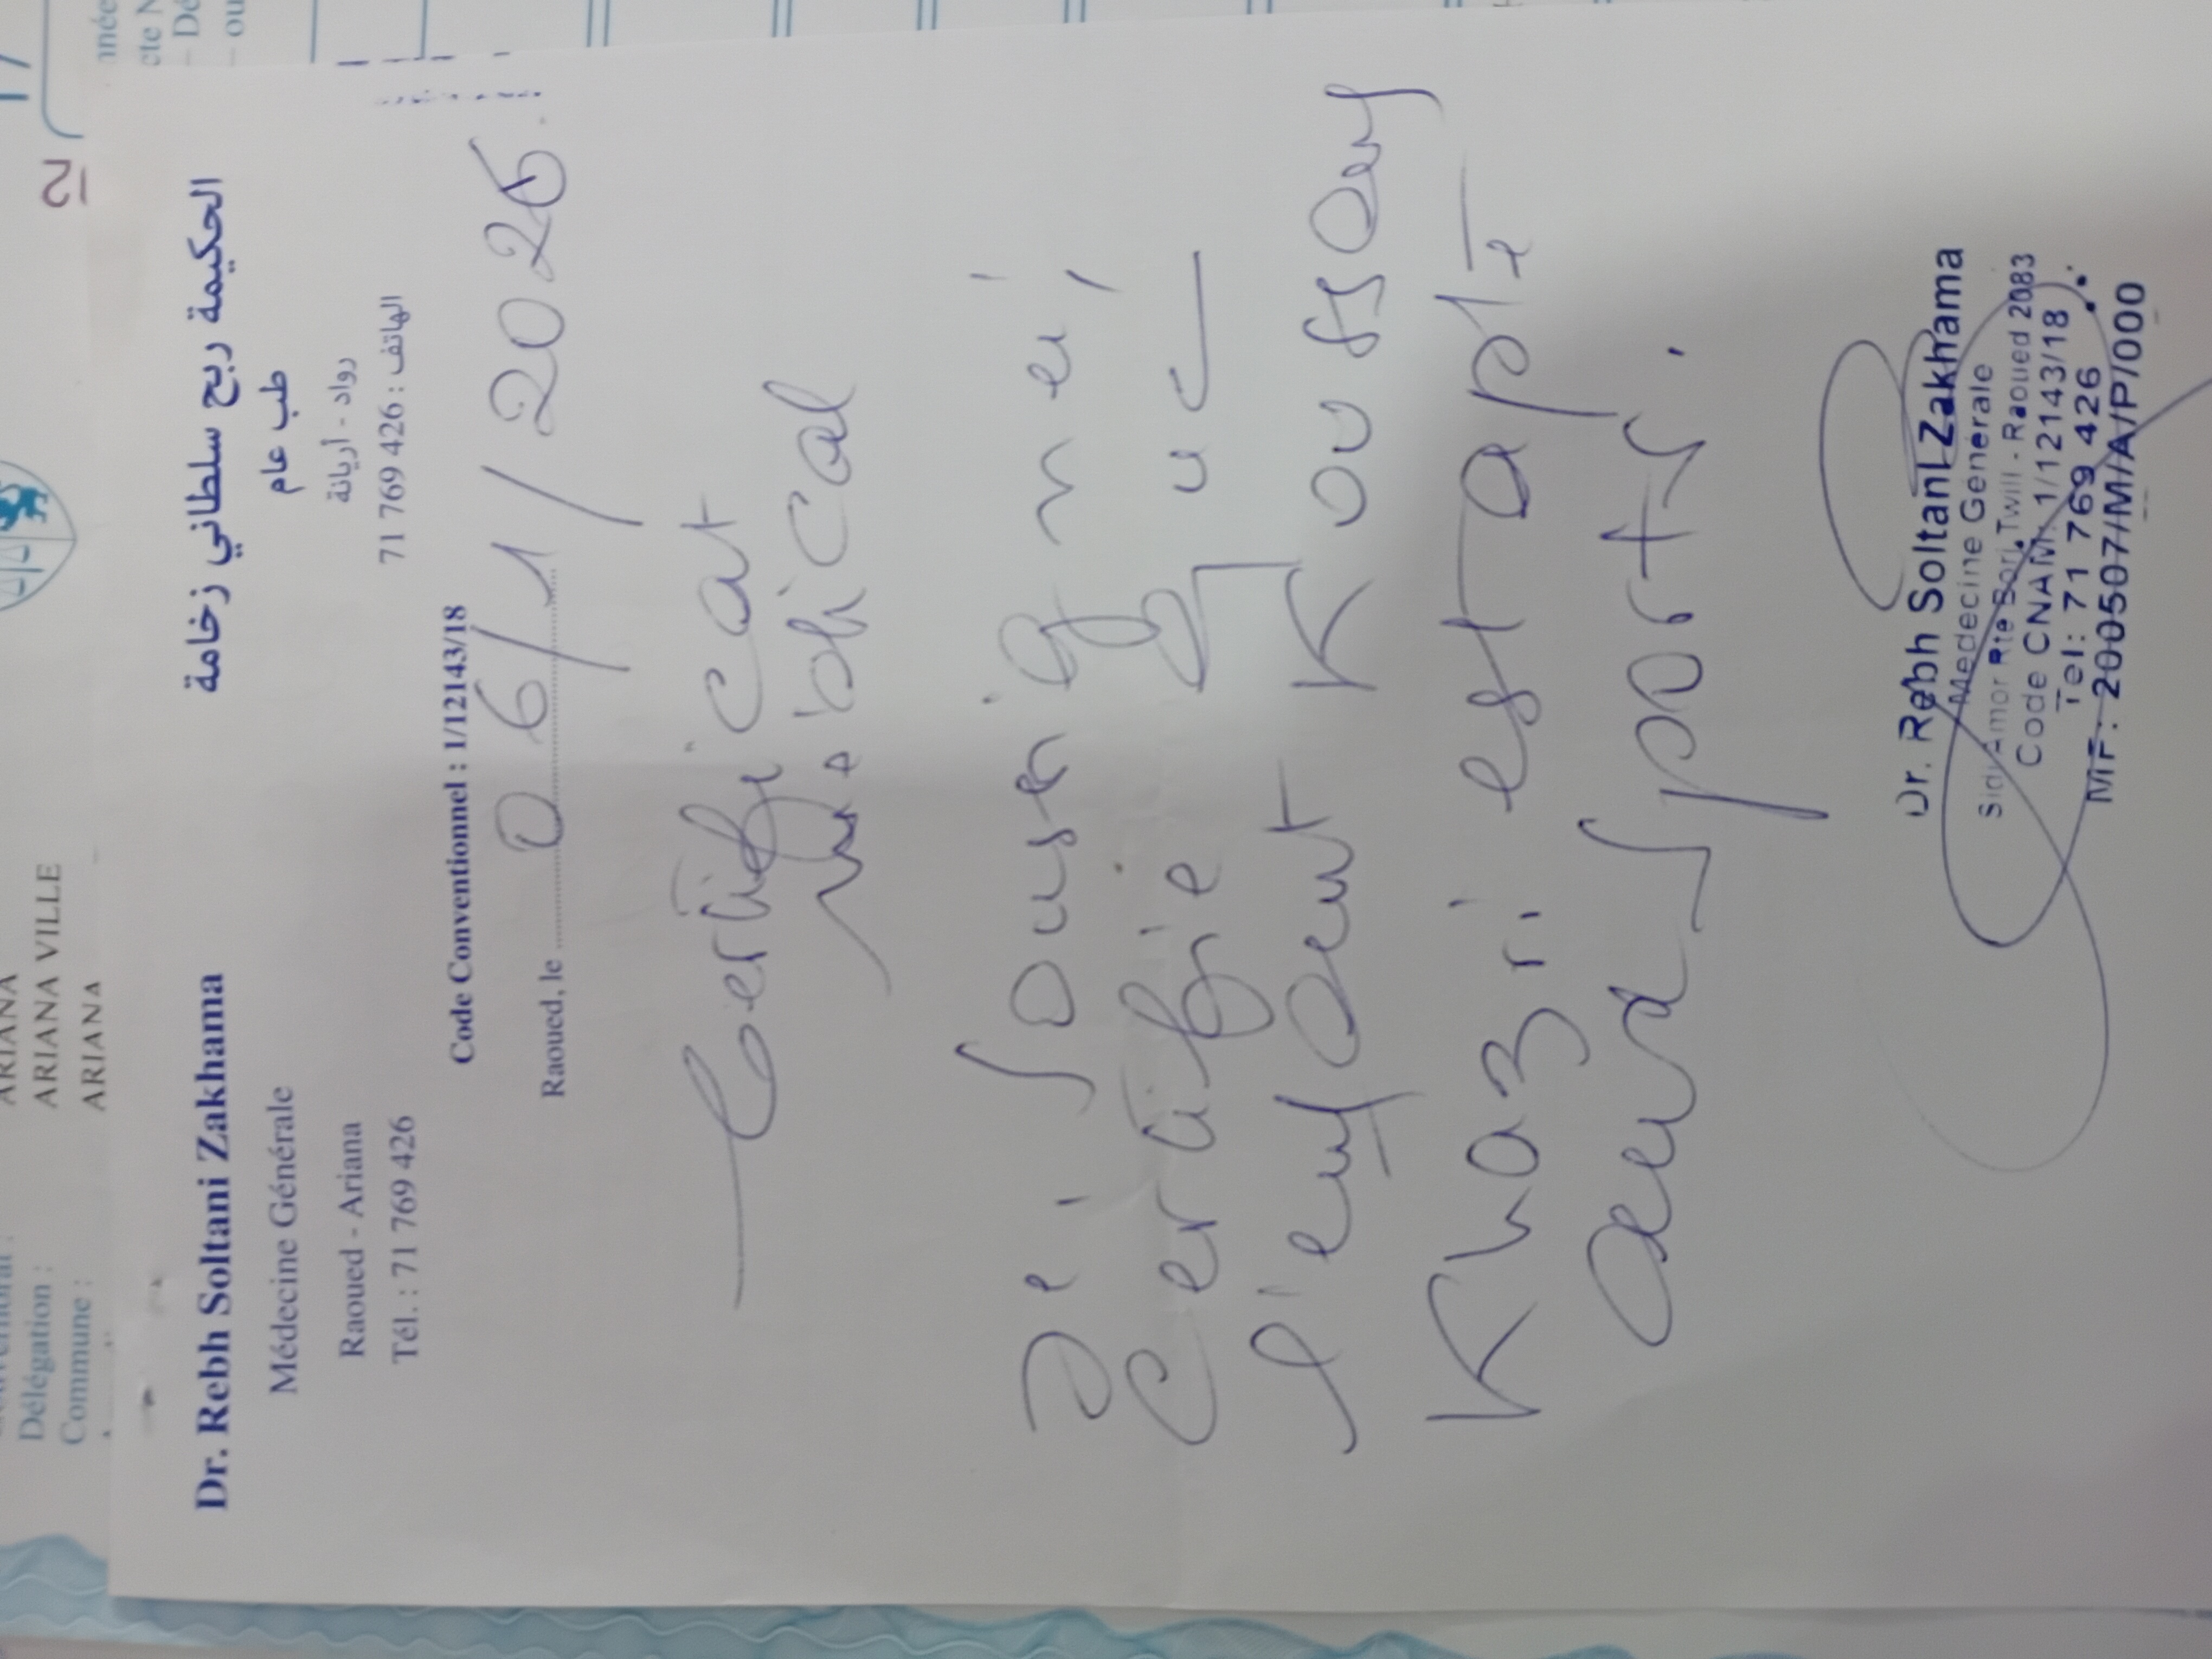 ARIANA
Délégation : ARIANA VILLE
Commune : ARIANA
Dr. Rebh Soltani Zakhama
الحكيمة ربح سلطاني زخامة
Médecine Générale
طب عام
Raoued - Ariana
رواد - أريانة
Tél. : 71 769 426
الهاتف : 426 769 71
Code Conventionnel : 1/12143/18
Raoued, le 06/1/2026.
Certificat
Médical
Je soussigné,
certifie que
l'enfant Koussay
Khazri est apte
aux sports.
Dr. Rebh Soltani Zakhama
Médecine Générale
Sidi Amor Rte Borj Twill - Raoued 2083
Code CNAM: 1/12143/18
Tel: 71 769 426
MF: 200507/M/A/P/000